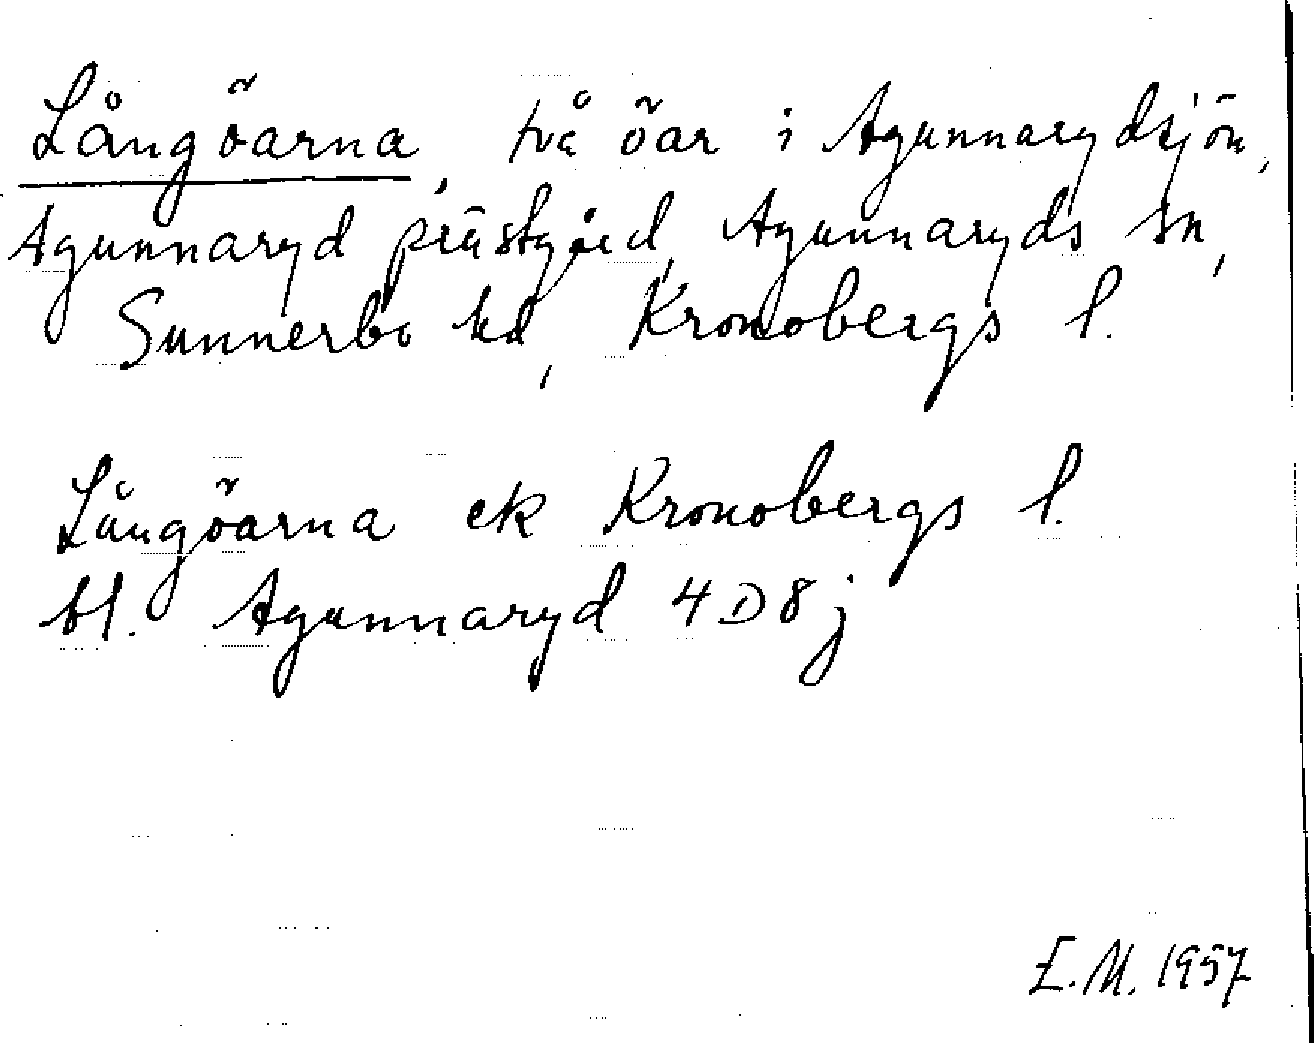 Långöarna, två öar i Agunnarydsjön,
Agunnaryd prästgård, Agunnaryds sn,
Sunnerbo hd, Kronobergs l.
Långöarna ek Kronobergs l.
bl. Agunnaryd 4D8j
E.M. 1957